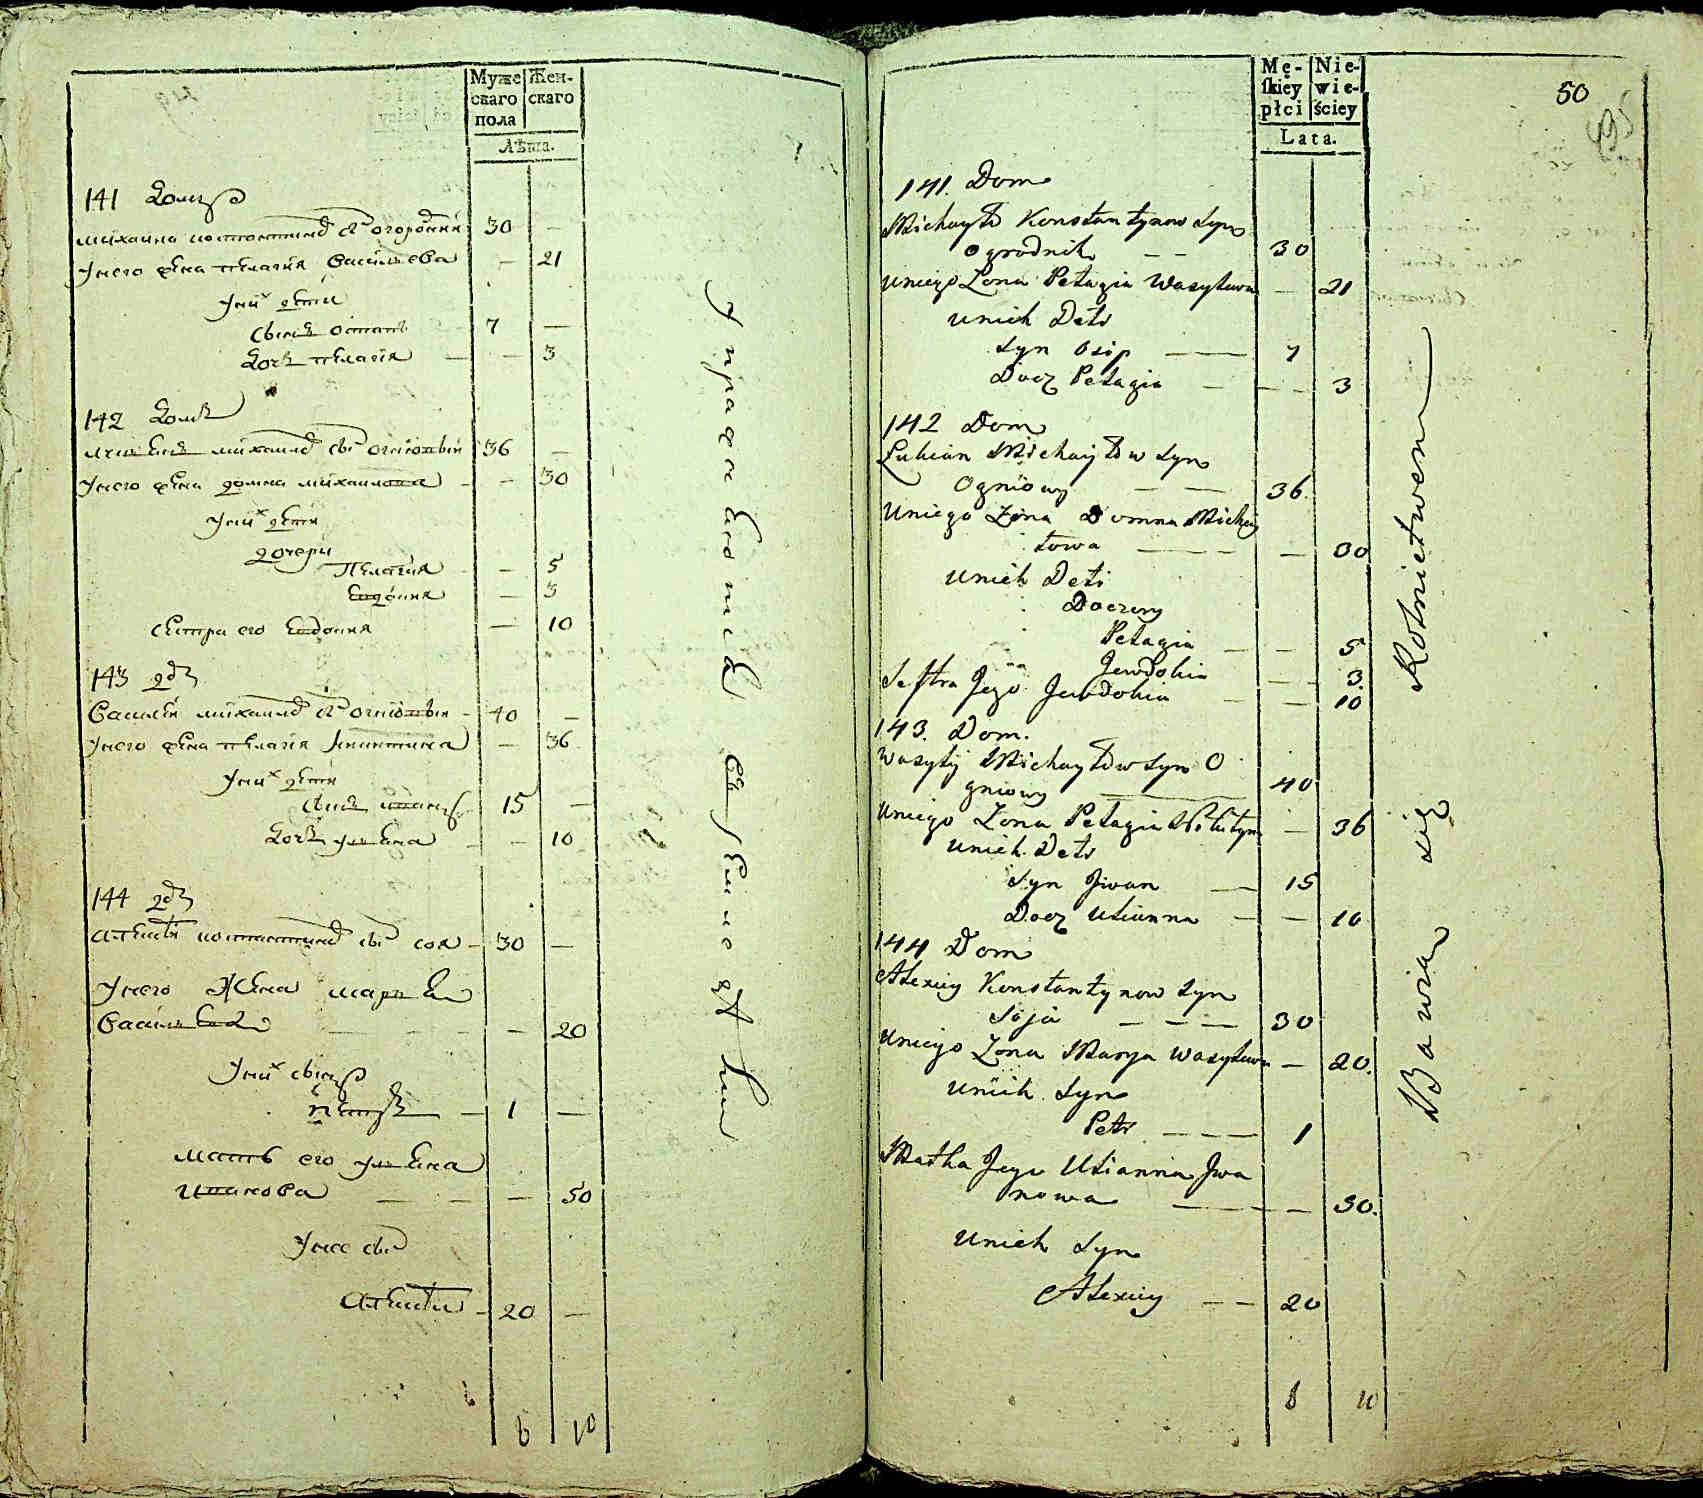 Муже
скаго
пола
Жен-
скаго
Лѣта.
141 Домъ
михаила костантинов сн огородник 30 —
унего жена пелагия василева — 21
уних дети
сынъ остапъ 7 —
дочъ пелагия — — 3
142 домъ
михаилов сн огнiовый 36 —
унего жена домна михаилова — — 30
уних дети
дочери
Пелагия — 5
Евдокия — 3
сестра его Евдокия — 10
143 дом
василий михаилов сн огнiовый — 40 —
унего жена пелагия никитина — 36
уних дети
сынъ иванъ 15 —
дочъ улиена — — 10
144 дом
алексей костантинов сн соя — 30 —
унего жена мария
василева — — — — — 20
уних сынъ
петръ — 1 —
мать его улиена
иванова — — — 50
унее сын
алексей — 20 —
6 10
упражняется в земледелии
Mę-
skiey
płci
Nie-
wie-
ściey
Lata.
50
141. Dom
Michayło Konstantynow Syn
Ogrodnik — — 30
uniego Żona Pelagia Wasylowa — 21
unich Deti
Syn Osip — 7
Docz Pelagia — — — 3
142 Dom
Łukian Michayłow Syn
Ogniowy — — 36.
Uniego Żona Domna Michay
łowa — — — 30
Unich Deti
Doczery
Pelagia — — 5
Jewdokia — — 3.
Sestra Jego Jewdokia — — 10
143. Dom.
Wasyly Michayłow Syn O
gniowy — 40
Uniego Żona Pelagia Nikityna — 36
Unich Deti
Syn Jwan — 15
Docz Ulianna — — 10
144 Dom
Alexiey Konstantynow Syn
Soja — — — 30
Uniego Żona Marya Wasylowa — 20.
Unich Syn
Petr — — — 1
Matka Jego Ulianna Jwa
nowa — — — 50.
Unich Syn
Alexiey — — 20
8 10
Bawia się Rolnictwem